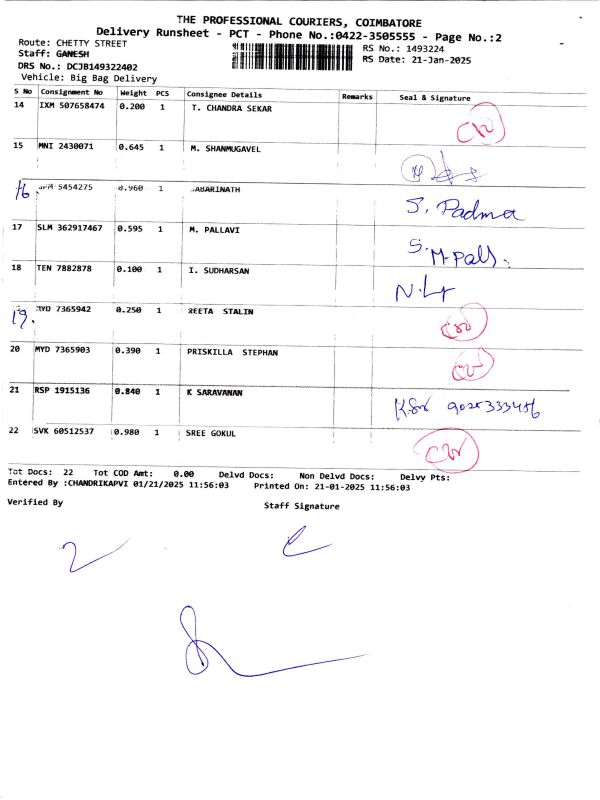 THE PROFESSIONAL COURIERS, COIMBATORE
Delivery Runsheet - PCT - Phone No.:0422-3505555 - Page No.:2
Route: CHETTY STREET
RS No.: 1493224
Staff: GANESH
RS Date: 21-Jan-2025
DRS No.: DCJB149322402
Vehicle: Big Bag Delivery
S No Consignment No Weight PCS Consignee Details Remarks Seal & Signature
14 IXM 507658474 0.200 1 T. CHANDRA SEKAR
15 MNI 2430071 0.645 1 M. SHANMUGAVEL
16 5454275 0.960 1 SABARINATH S. Padma
17 SLM 362917467 0.595 1 M. PALLAVI
18 TEN 7882878 0.100 1 I. SUDHARSAN
19. MYD 7365942 0.250 1 REETA STALIN
20 MYD 7365903 0.390 1 PRISKILLA STEPHAN
21 RSP 1915136 0.840 1 K SARAVANAN
22 SVK 60512537 0.980 1 SREE GOKUL
Tot Docs: 22 Tot COD Amt: 0.00 Delvd Docs: Non Delvd Docs: Delvy Pts:
Entered By :CHANDRIKAPVI 01/21/2025 11:56:03 Printed On: 21-01-2025 11:56:03
Verified By Staff Signature